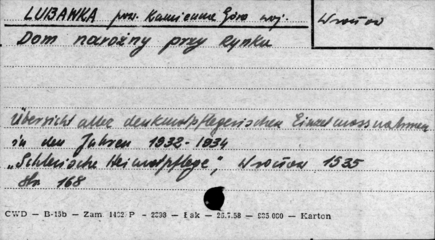 LUBAWKA pow. Kamienna Góra woj. Wrocław
Dom narożny przy Rynku
Übersicht aller denkmalpflegerischen Einzelmassnahmen
in den Jahren 1932-1934
„Schlesische Heimatpflege", Wrocław 1935
str 168
CWD — B-15b — Zam 1402 P - 2238 — Łak — 26.7.58 — 985.000 — Karton